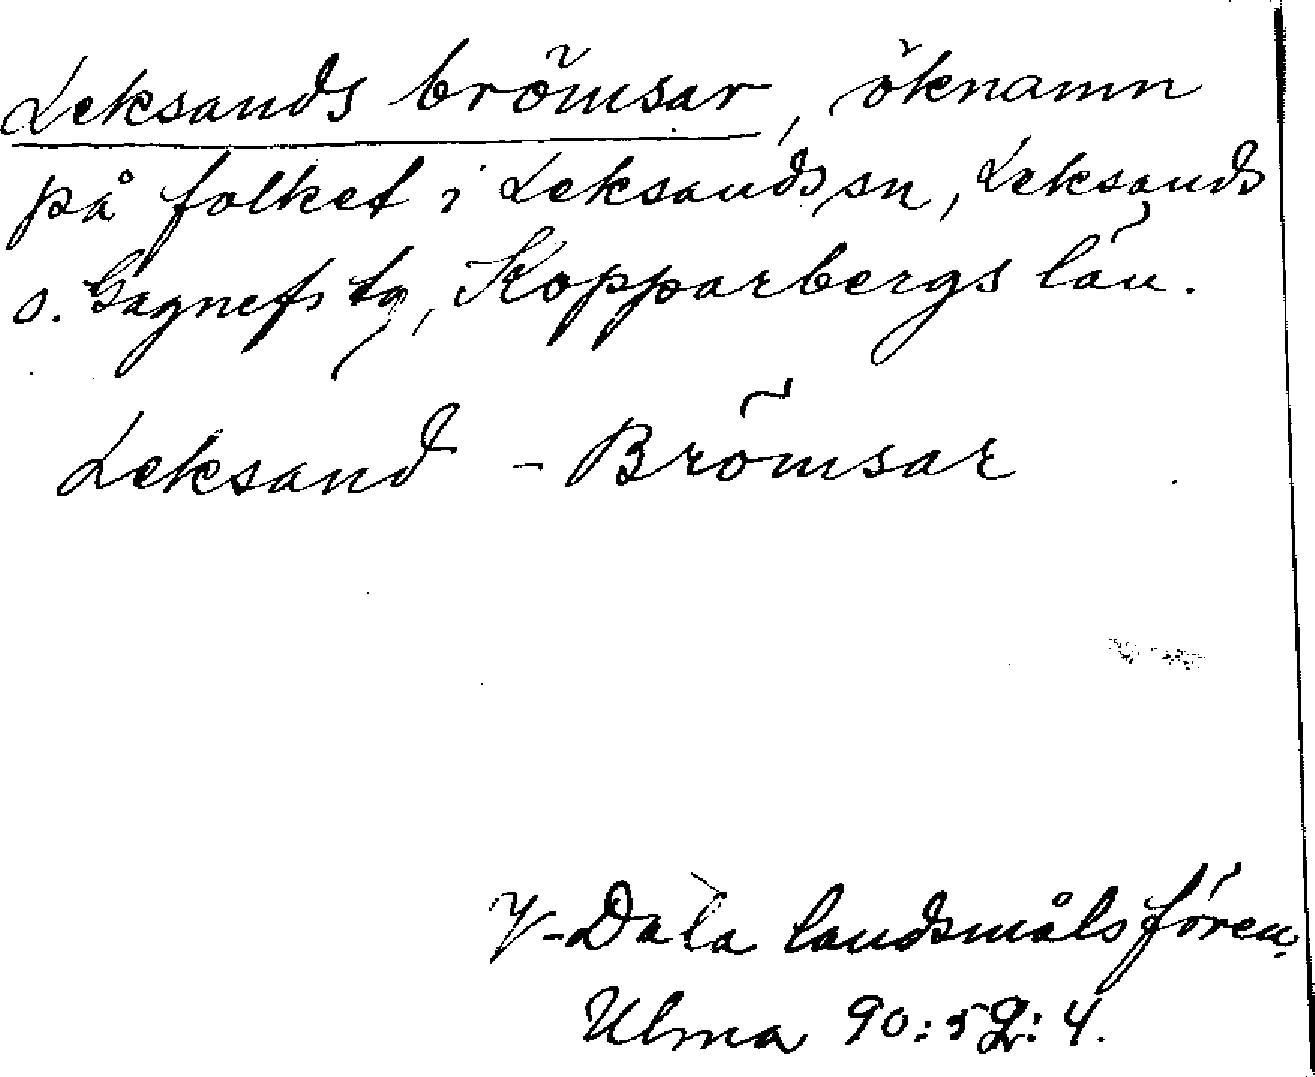 Leksands brömsar, öknamn
på folket i Leksands sn, Leksands
o. Gagnefs tg, Kopparbergs län.
Leksand - Brömsar
V-Dala landsmålsfören.
Ulma 90:52:4.